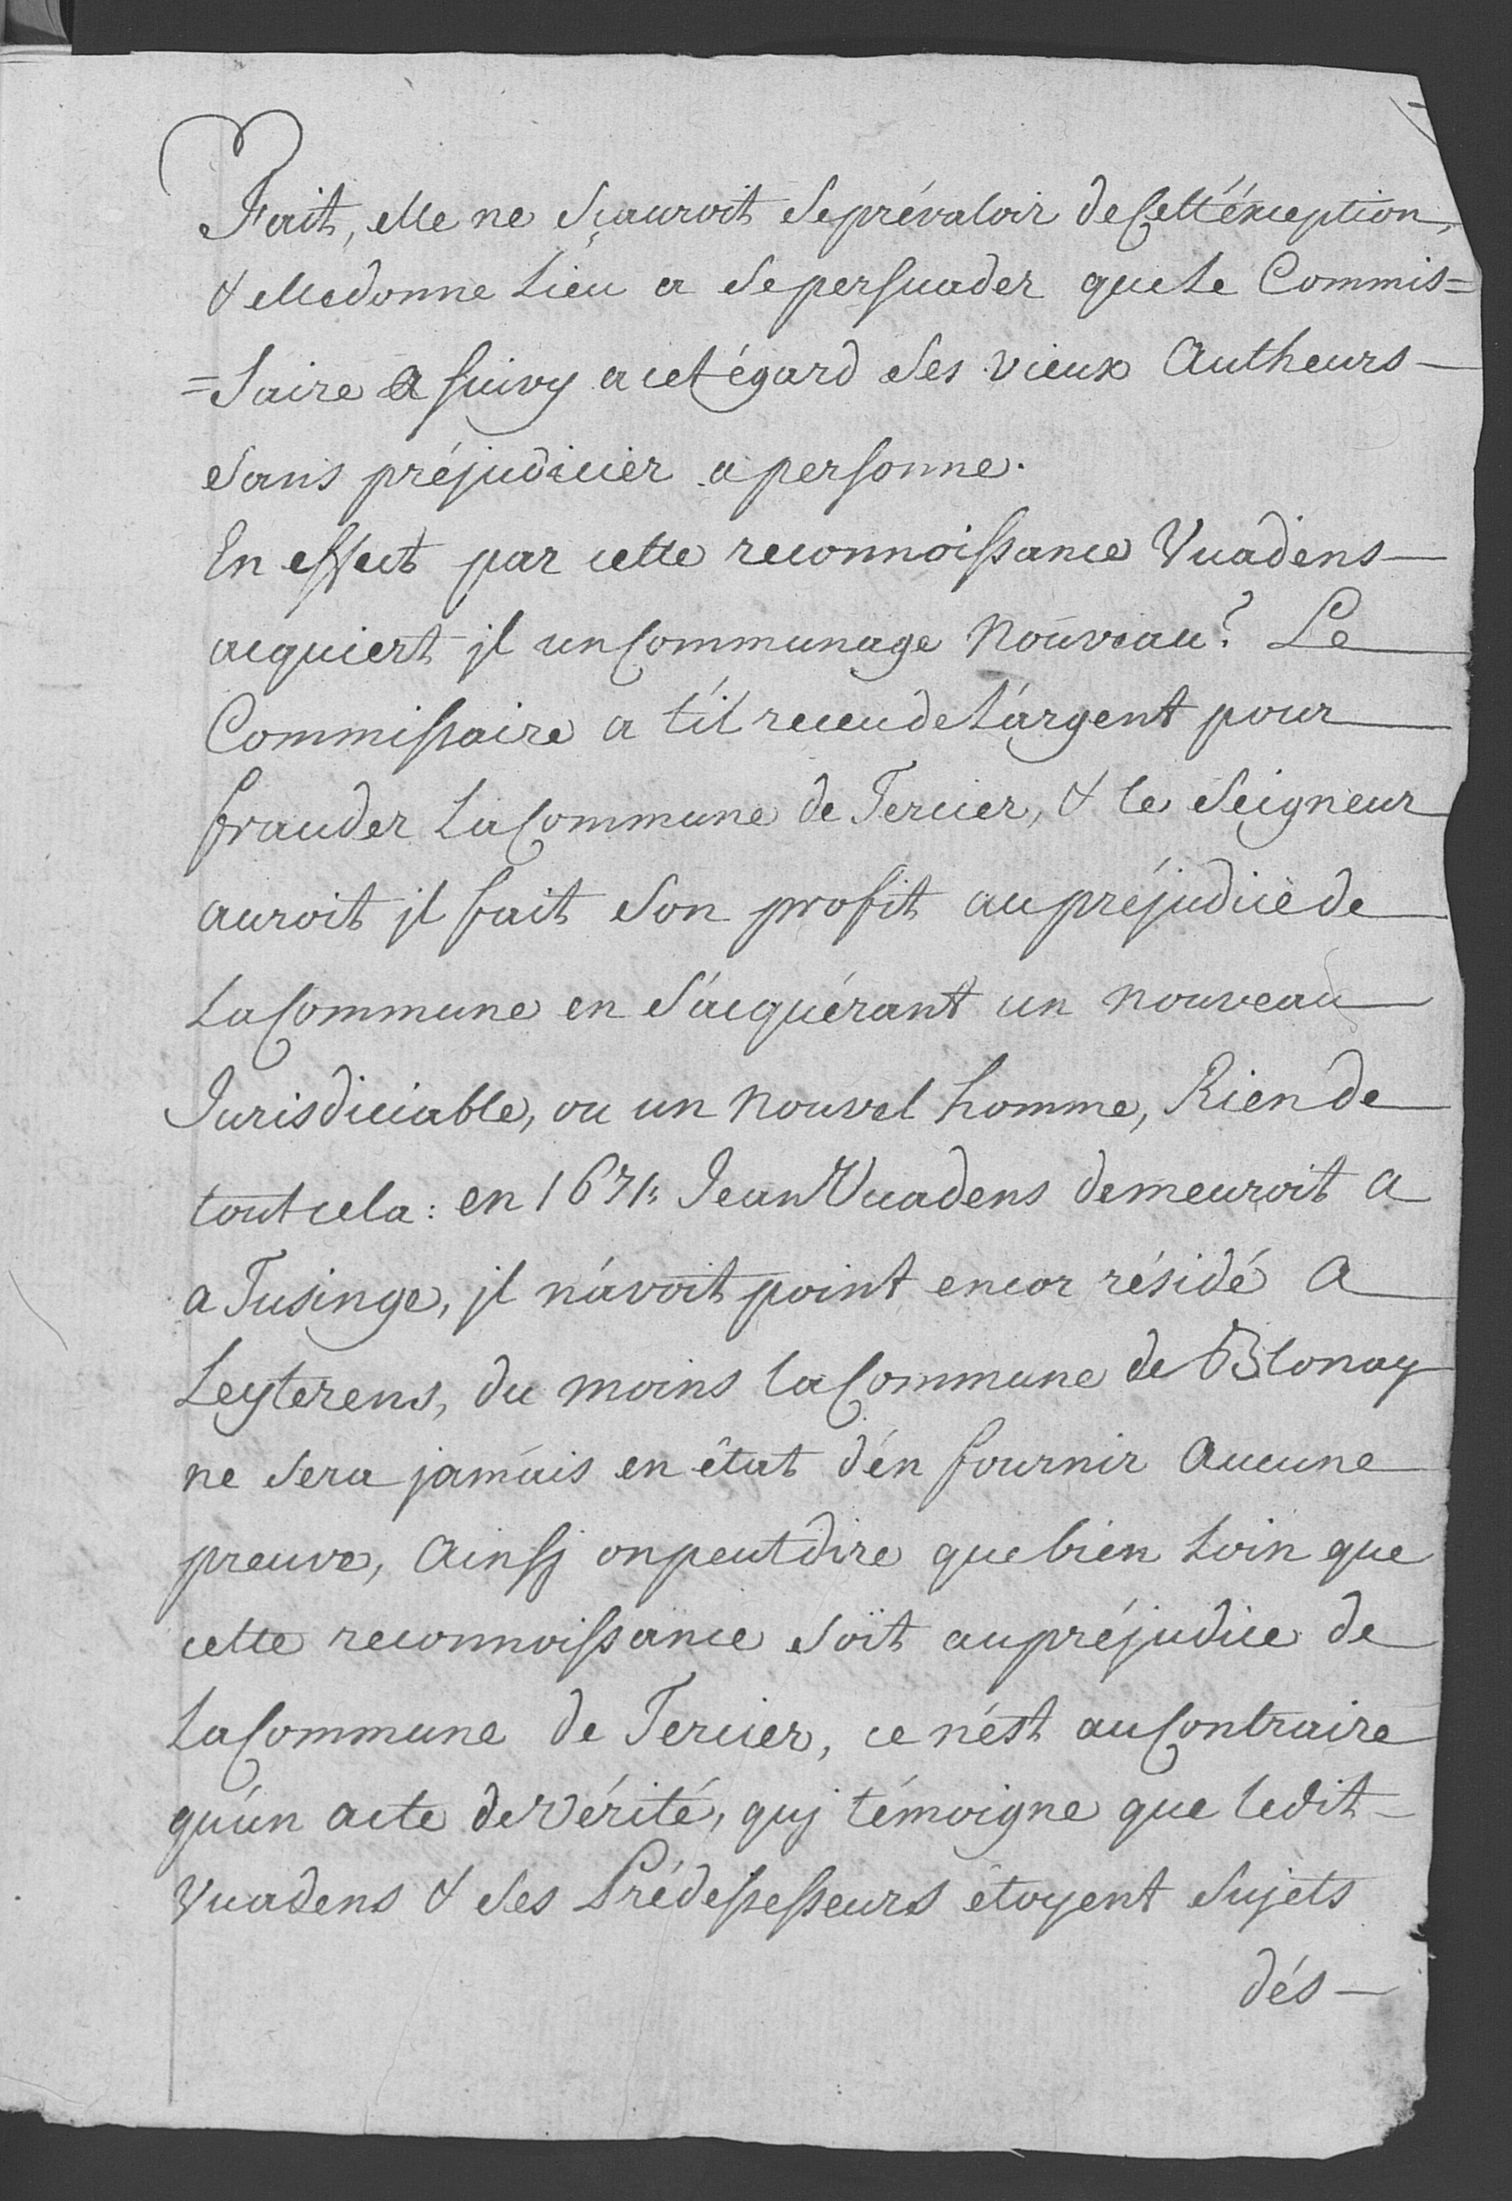 Fait, elle ne sçauroit se prévaloir de cett'éxception,
& elle donne lieu a se persuader que le Commis=
=saire a suivy a cet égard ses vieux Autheurs
sans préjudicier a personne.
En effect par cette reconnoissance Vuadens
acquiert jl un Communage nouveau? Le
Commissaire a t'il receu de l'argent pour
frauder la Commune de Tercier, & le Seigneur
auroit jl fait son profit au préjudice de
la Commune en s'acquérant un nouveau
Jurisdiciable, ou un nouvel homme, Rien de
tout cela: en 1671. Jean Vuadens demeuroit a
a Tusinge, jl n'avoit point encor résidé a
Leyterens, du moins la Commune de Blonay
ne sera jamais en êtat d'en fournir aucune
preuve, Ainsj on peut dire que bien loin que
cette reconnoissance soit au préjudice de
la Commune de Tercier, ce n'est au Contraire
qu'un acte de Vérité, quj témoigne que ledit
Vuadens & ses Prédessesseurs étoyent Sujets
dés